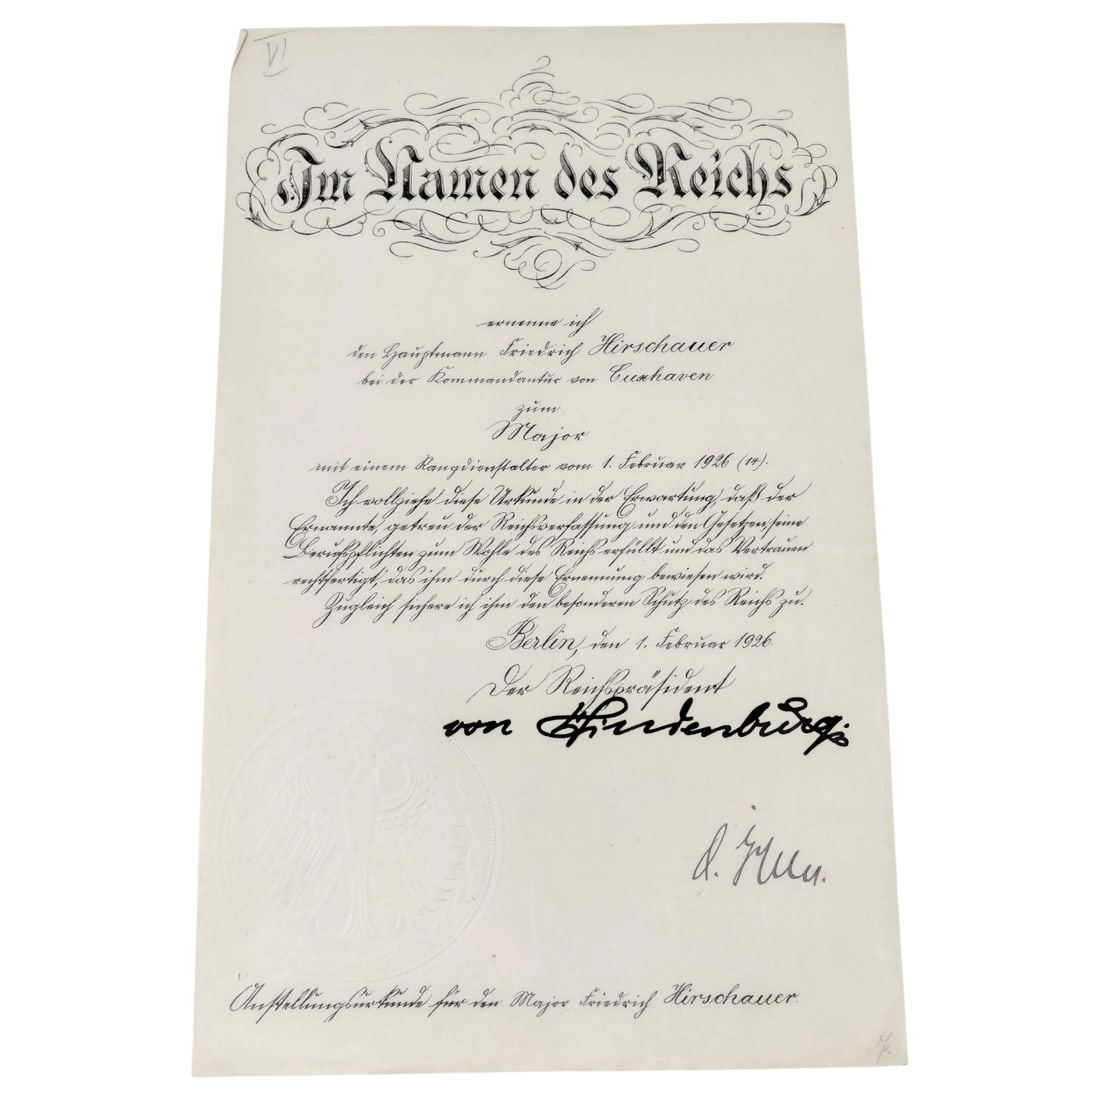 VI
Im Namen des Reichs
ernenne ich
den Hauptmann Friedrich Hirschauer
bei der Kommandantur von Cuxhaven
zum
Major
mit einem Rangdienstalter vom 1. Februar 1926 (14).
Ich vollziehe diese Urkunde in der Erwartung, daß der
Ernannte, getreu der Reichsverfassung und den Gesetzen, seine
Berufspflichten zum Wohle des Reichs erfüllt und das Vertrauen
rechtfertigt, das ihm durch diese Ernennung bewiesen wird.
Zugleich sichere ich ihm den besonderen Schutz des Reichs zu.
Berlin, den 1. Februar 1926
Der Reichspräsident
von Hindenburg
Anstellungsurkunde für den Major Friedrich Hirschauer.